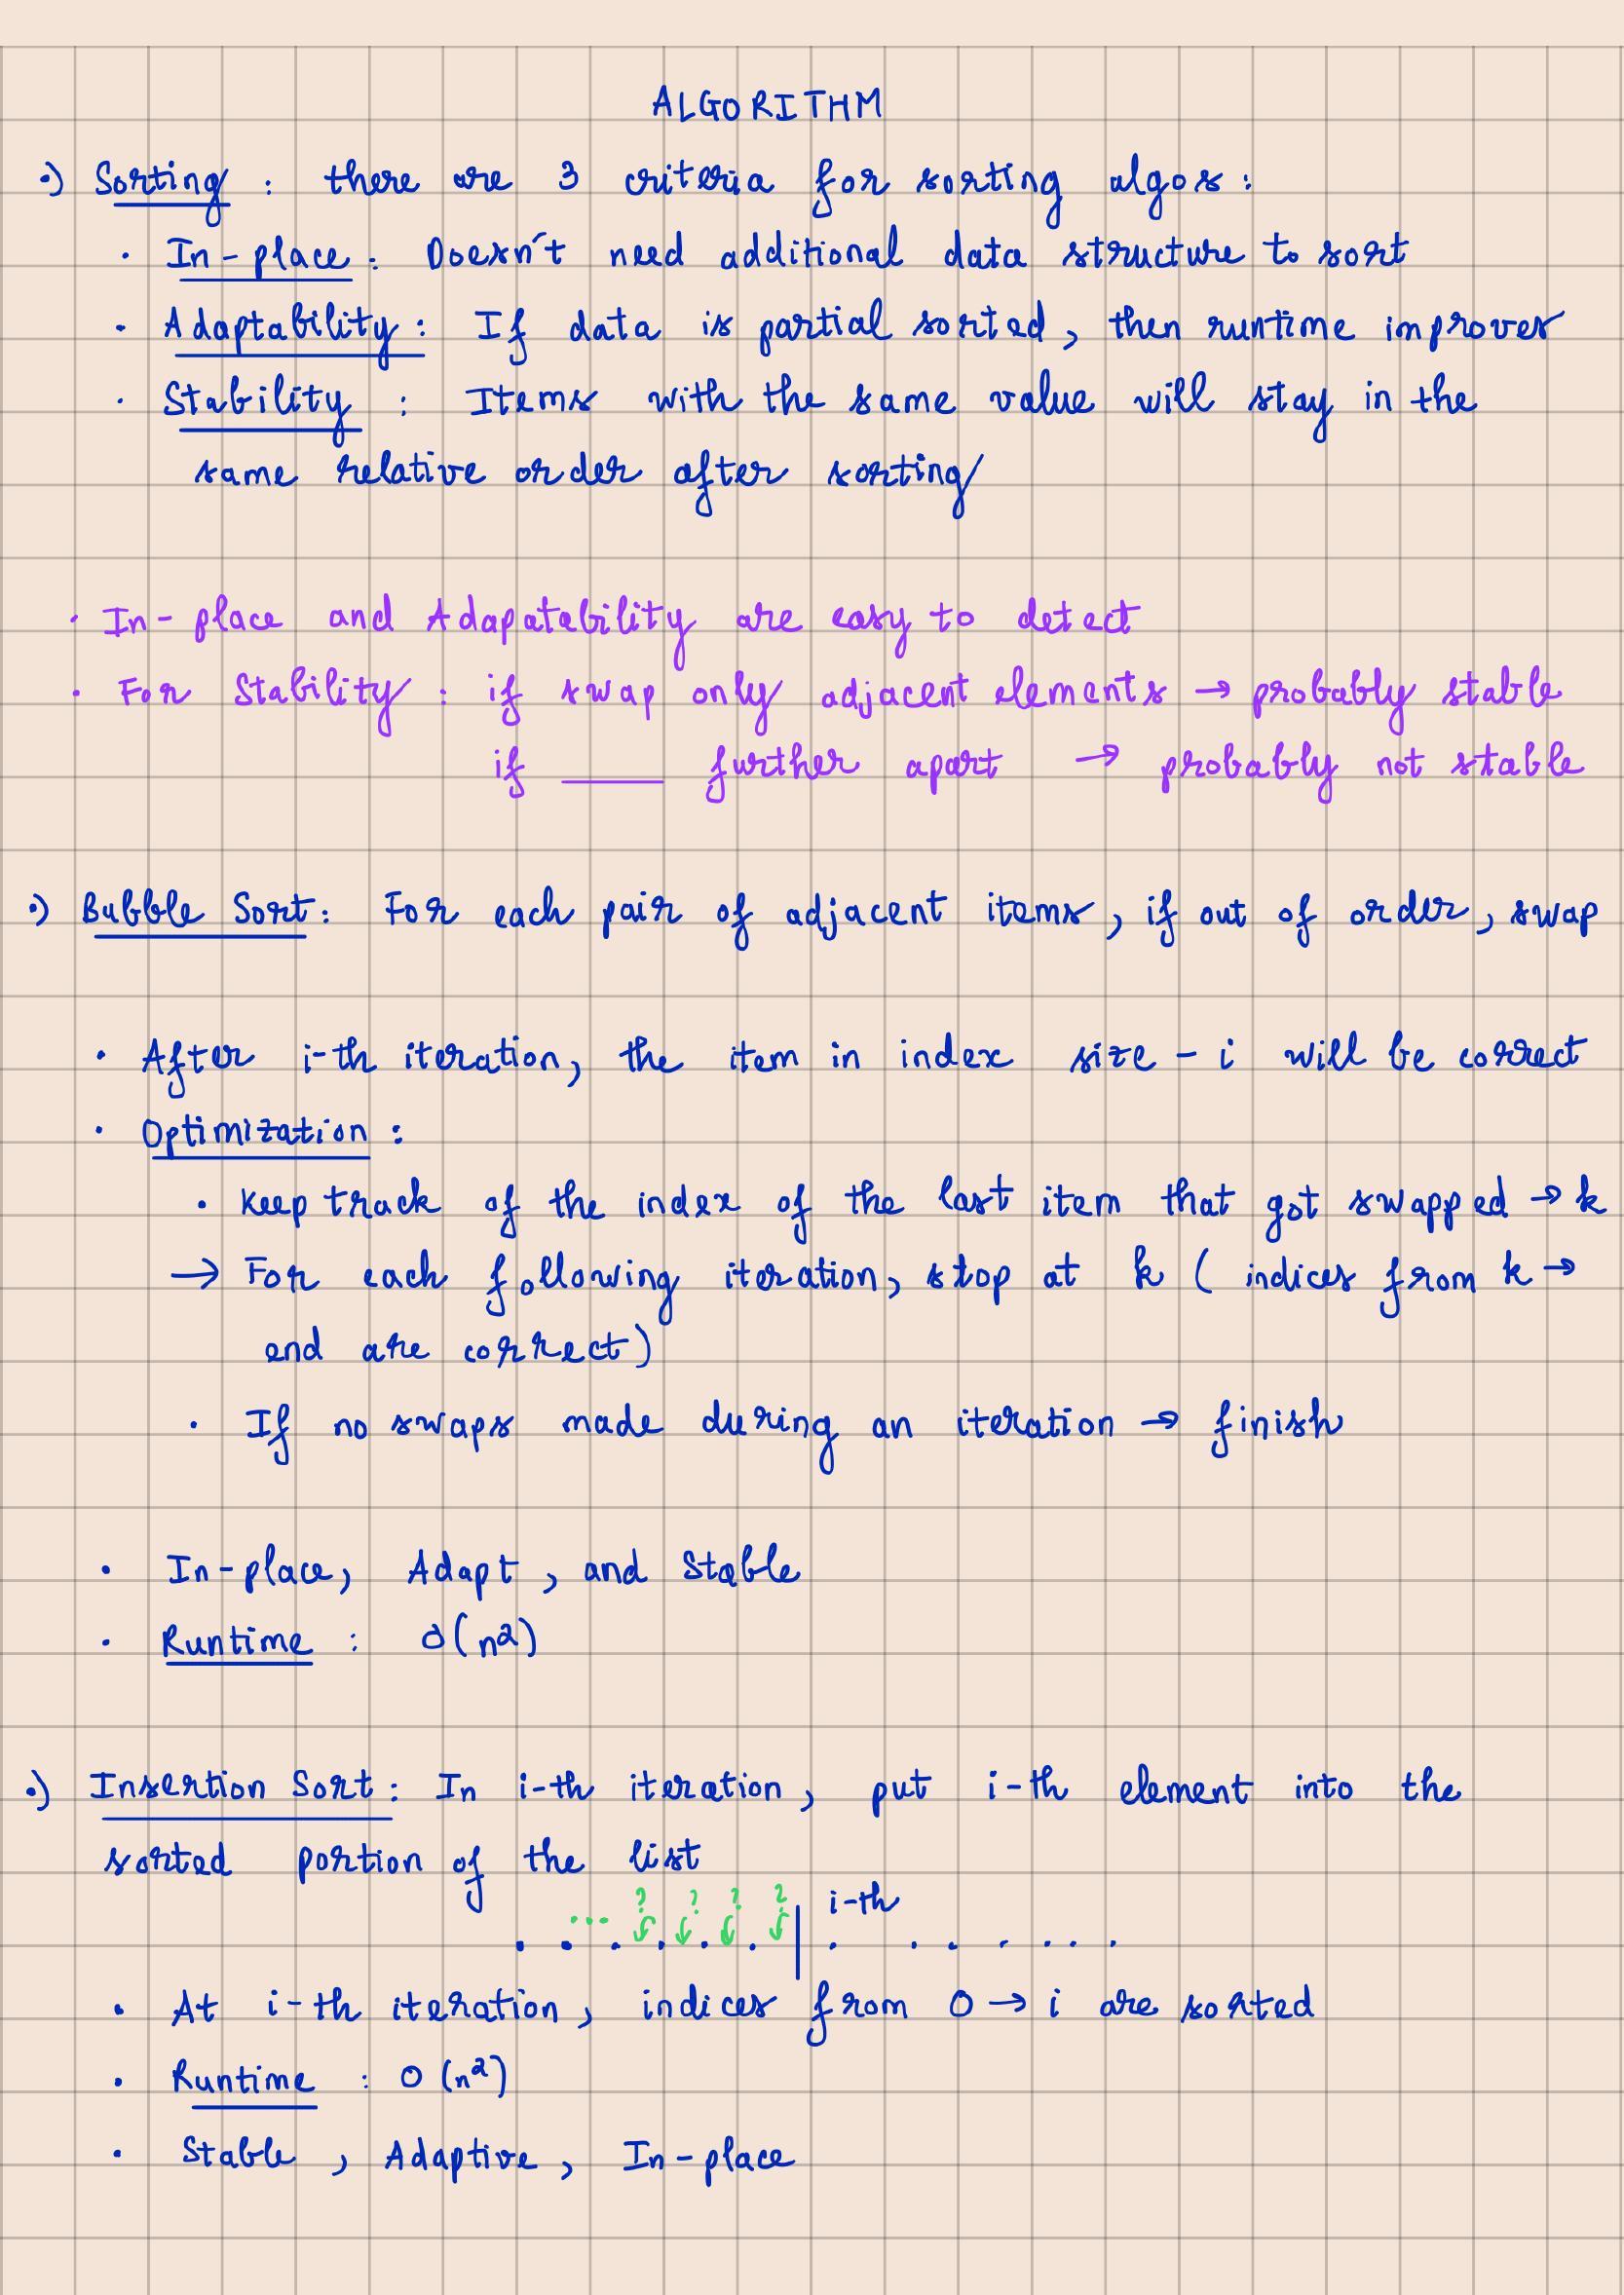 ALGORITHM
•) Sorting : there are 3 criteria for sorting algos :
• In-place : Doesn't need additional data structure to sort
• Adaptability : If data is partial sorted, then runtime improves
• Stability : Items with the same value will stay in the
same relative order after sorting
• In-place and Adapatability are easy to detect
• For Stability : if swap only adjacent elements → probably stable
if ____ further apart → probably not stable
•) Bubble Sort : For each pair of adjacent items, if out of order, swap
• After i-th iteration, the item in index size - i will be correct
• Optimization :
• Keep track of the index of the last item that got swapped → k
→ For each following iteration, stop at k ( indices from k →
end are correct)
• If no swaps made during an iteration → finish
• In-place, Adapt, and Stable
• Runtime : O(n²)
•) Insertion Sort : In i-th iteration, put i-th element into the
sorted portion of the list
... ? ? ? ? i-th
• At i-th iteration, indices from 0 → i are sorted
• Runtime : O(n²)
• Stable, Adaptive, In-place